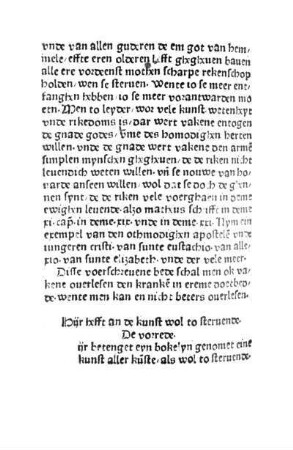 vnde van allen guderen de em got van hem-
mele, effte eren olderen hefft geghegeuen hauen
alle ere vordeenst mothen scharpe rekenschop
holden, wen se steruen. Wente io se meer ent-
fanghen hebben, io se meer vorantwarden mo-
eten. Men to leyder, wor vele kunst wetenheyt
vnde rikedoms is, dar wert vaken entogen
de gnade godes, vmme des homodighen herten
willen, vnde de gnade wert vaken den armē
simplen mynschen gheghеuen, de de riken nicht
leuendich weten willen, vn̄ se nouwe van ho-
uarde anseen willen, wol dat se doch de ghen-
nen synt, de de riken vele voerghaen in deme
ewighen leuende, also matheus schrift in deme
xi. cap. in deme .xix. vnde in deme .xxi. Nym ein
exempel van den othmodighen apostelē vnde
iungeren cristi, van sunte eustachio, van alle-
xio, van sunte elizabeth, vnde der vele meer.
Disse voerschreuene bede schal men ok va-
kene ouerlesen den krankē in ereme dotbed-
de, wente men kan en nicht beters ouerlesen.
Hijr hefft an de kunst wol to steruende.
De vorrede.
ijr betenget eyn bokelyn genomet eine
kunst aller kūste, als wol to steruende.